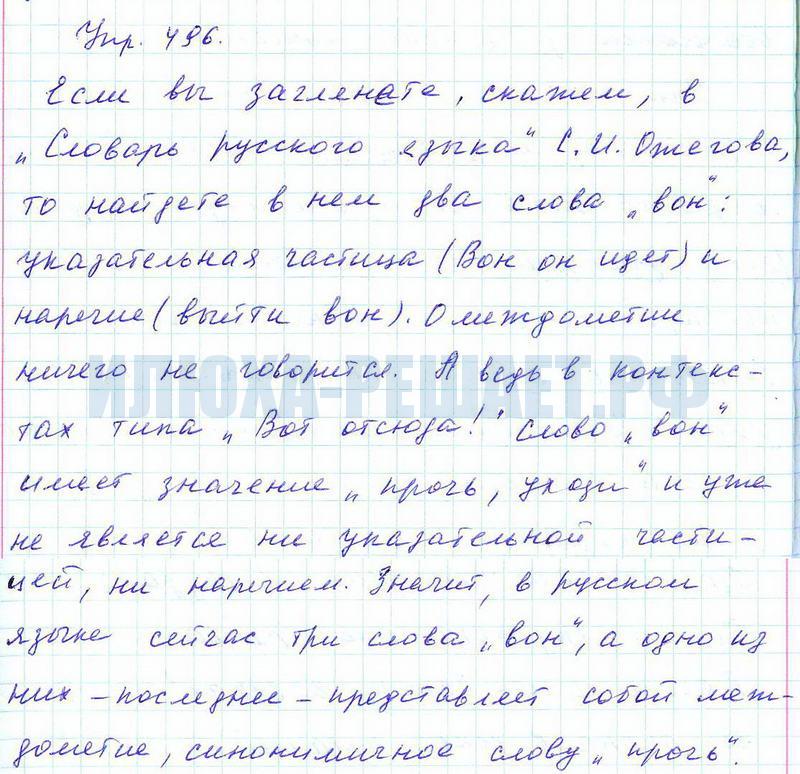 Упр. 496.
Если вы загленете, скажем, в
„Словарь русского языка" С.И. Ожегова,
то найдете в нем два слова „вон":
указательная частица (Вон он идет) и
наречие (выйти вон). О междометии
ничего не говорится. А ведь в контекс-
тах типа „Вот отсюда!" слово „вон"
имеет значение „прочь, уходи" и уже
не является ни указательной части-
цей, ни наречием. Значит, в русском
языке сейчас три слова „вон", а одно из
них - последнее - представляет собой меж-
дометие, синонимичное слову „прочь".
ИЛЮХА-РЕШАЕТ.РФ